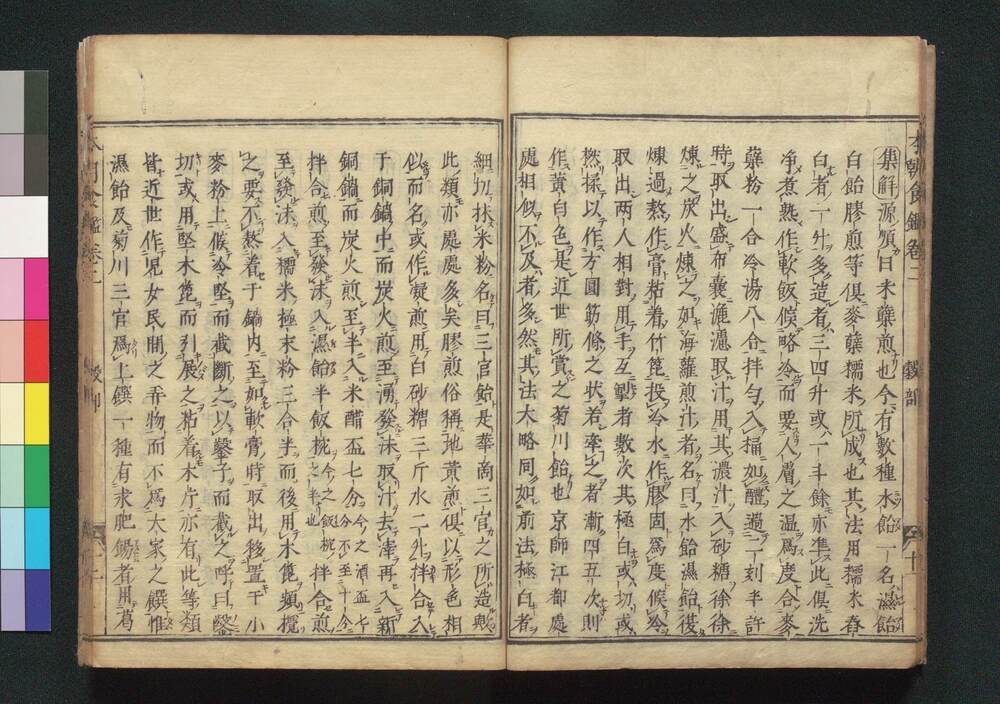 本朝食鑑卷二 穀部 十一
集解源順曰米糵煎也今有數種水飴一名濕飴
白飴膠煎等俱麥糵糯米所成也其法用糯米舂
白者一升多造者三四升或一斗餘亦準此俱洗
净煮熟作軟飯候略冷而要人膚之温爲度合麥
糵粉一合冷湯八合拌勻入桶如醴過一刻半許
時取出盛布囊漉濾取汁用其濃汁入砂糖徐徐
煉之炭火煉之如海蘿煎汁者名曰水飴濕飴後
煉過熬作膏粘着竹箆投冷水作膠固爲度候冷
取出兩人相對用手互掣者數次其極白或切或
撚揉以作方圓筋條之狀若牽之者漸四五次則
作黃白色是近世所賞之菊川飴也京師江都處
處相似不及者多然其法大略同如前法極白者
細切抹米粉名曰三官飴是華商三官之所造歟
此類亦處處多矣膠煎俗稱地黃煎俱以形色相
似而名或作凝煎用白砂糖三斤水二升拌合入
于銅鍋中而炭火煎至湧發沫取汁去滓再入新
銅鍋而炭火煎至半入米醋盃七分今之酒盃七分不至十分
拌合煎至發沫入濕飴半飯椀今之飯椀之半也拌合煎
至發沫入糯米極末粉三合半而後用木箆頻攪
之要不熬着于鍋内至如軟膏時取出移置于小
麥粉上候冷堅而截斷之以鑿子而截之呼曰鑿
切或用堅木箆而引展之粘着木片亦有此等類
皆近世作兒女民間之弄物而不爲大家之饌惟
濕飴及菊川三官爲上饌一種有求肥錫者用葛